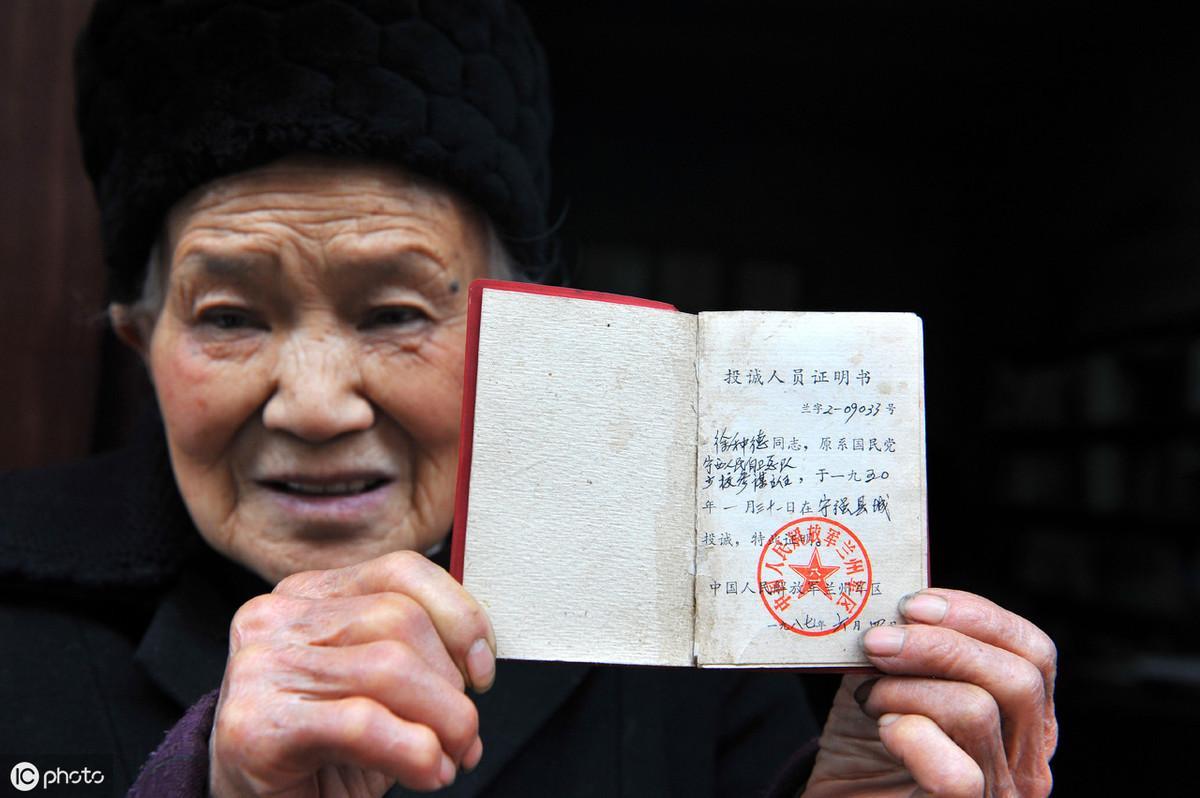 投诚人员证明书
兰字2-09033号
徐种德同志，原系国民党
宁西人民自卫总队
少校参谋主任，于一九五0
年一月三十一日在宁强县城
投诚，特此证明。
中国人民解放军兰州军区
一九八七年六月四日
中国人民解放军兰州军区
八一
IC photo